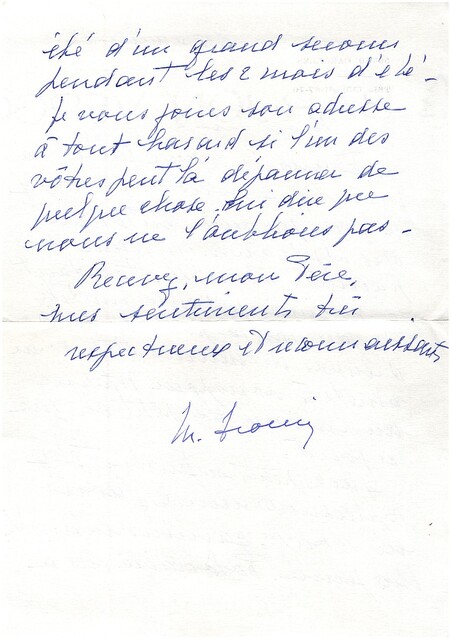 été d'un grand secours
pendant les 2 mois d'été -
Je vous joins son adresse
à tout hasard si l'un des
vôtres peut la dépanner de
quelque chose. Lui dire que
nous ne l'oublions pas -
Recevez, mon Père,
mes sentiments très
respectueux et reconnaissants
M.